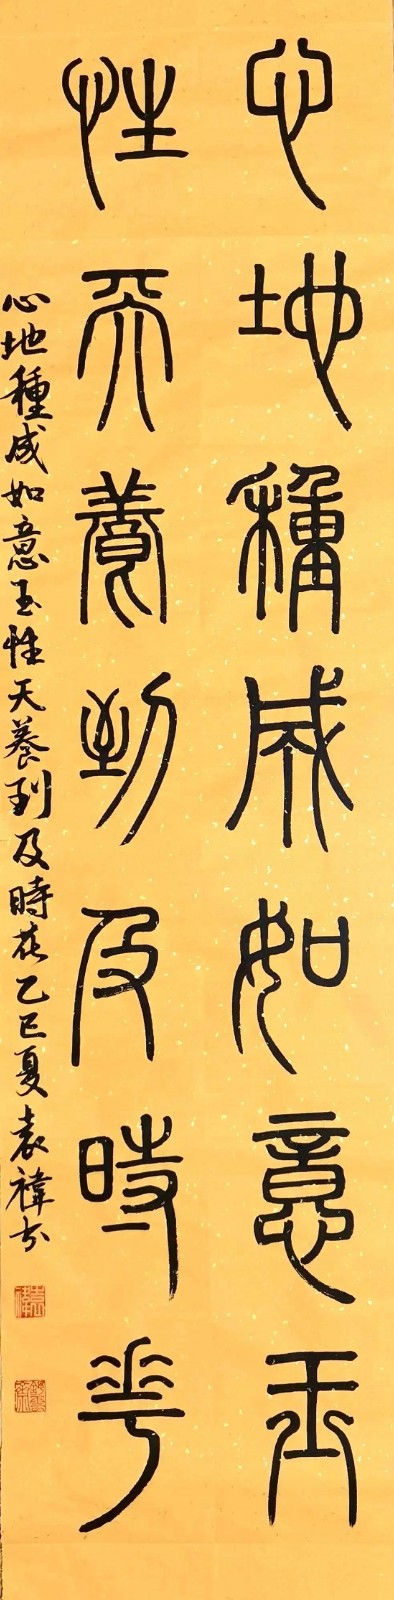 心地種成如意玉
性天養到及時花
心地種成如意玉性天養到及時花乙巳夏袁禕書